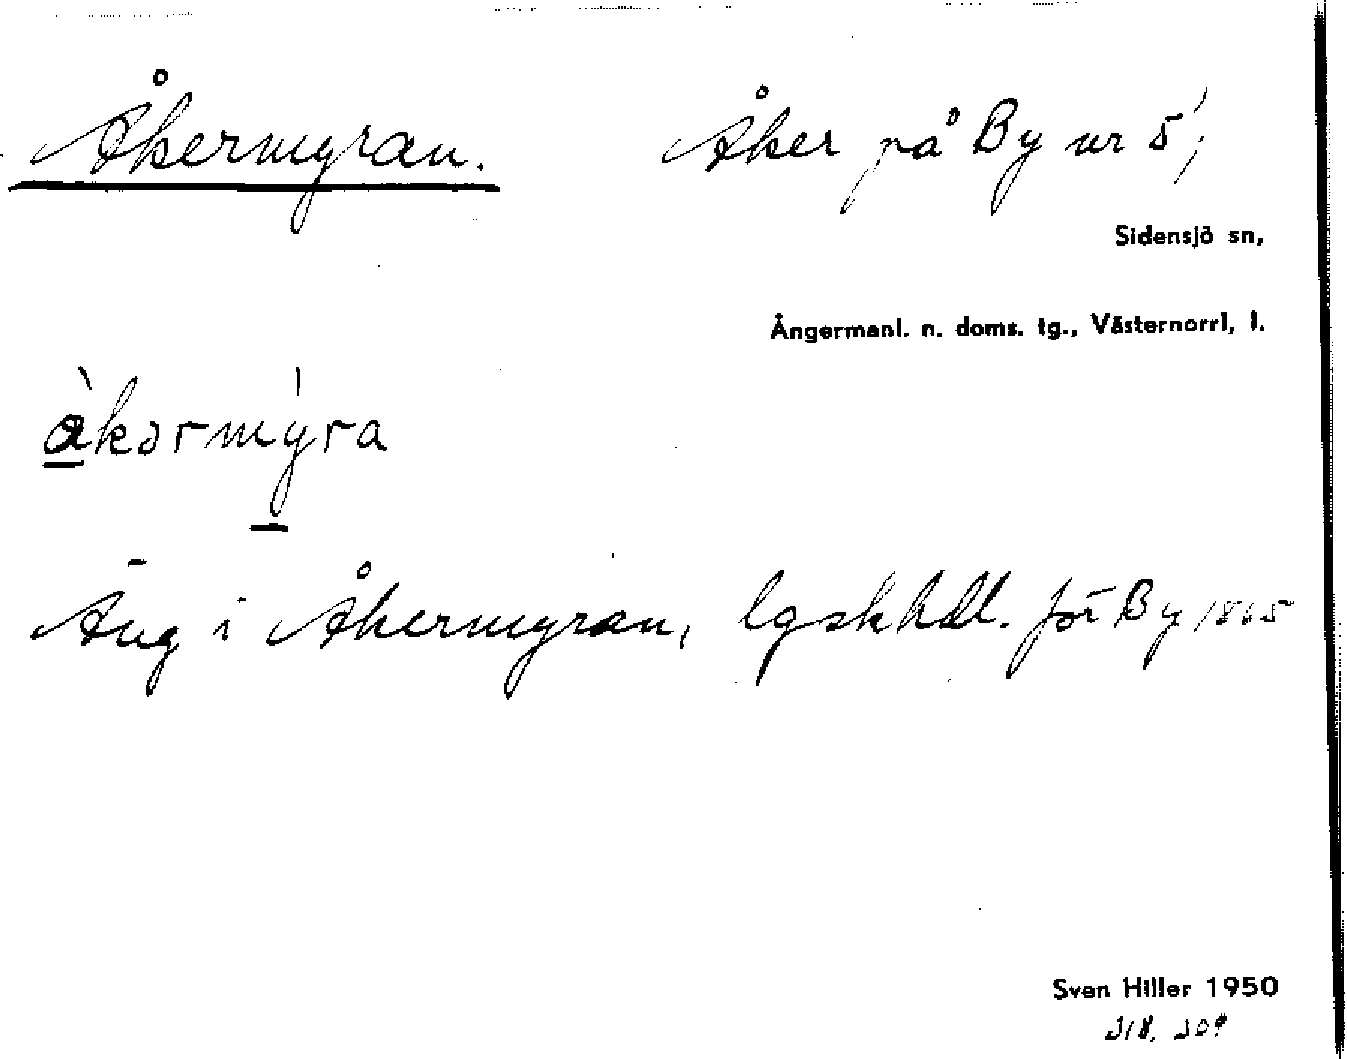 Åkermyran. Åker på By nr 5¹;
Sidensjö sn,
Ångermanl. n. doms. tg., Västernorrl, l.
àkərmýra
Äng i Åkermyran, lgskhdl. för By 1865
Sven Hiller 1950